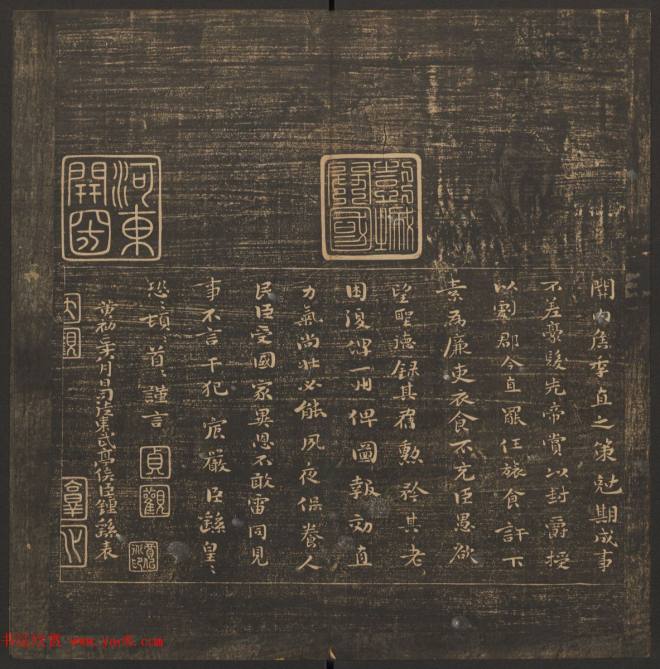 關內侯季直之策尅期成事
不差豪髮先帝賞以封爵授
以劇郡今直罷任旅食許下
素為廉吏衣食不充臣愚欲
望聖德錄其舊勲矜其老
困復俾一州俾圖報效直
力氣尚壯必能夙夜保養人
民臣受國家異恩不敢雷同見
事不言干犯宸嚴臣繇皇〻
恐〻頓〻首〻謹言
黃初二年八月日司徒東武亭侯臣鍾繇表
河東
開國
貞觀
www.yac8.com